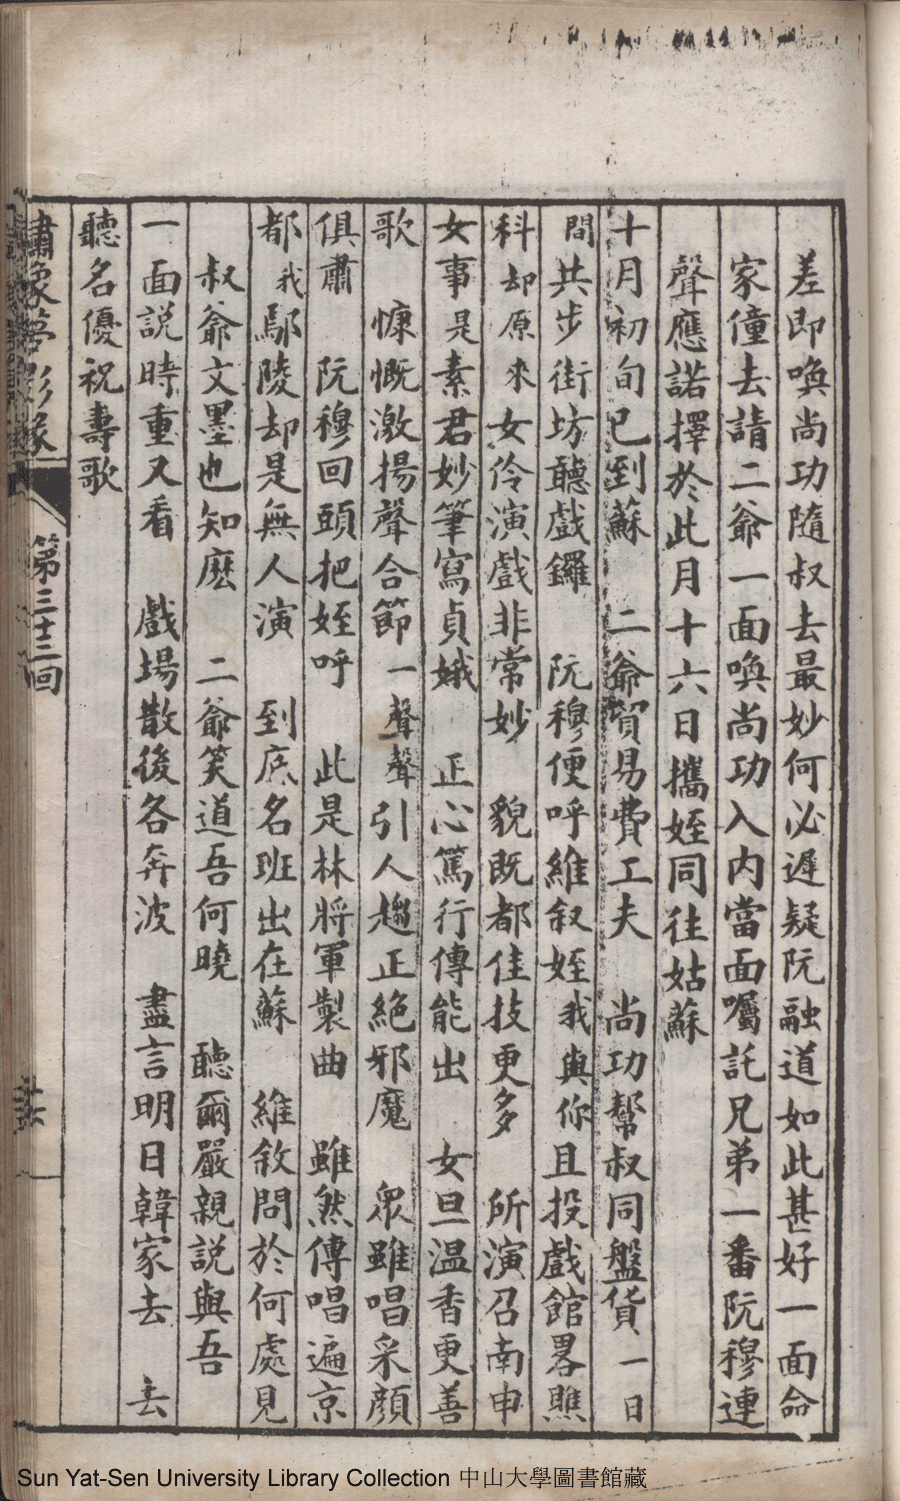 差即喚尚功隨叔去最妙何必遲疑阮融道如此甚好一面命
家僮去請二爺一面喚尚功入內當面囑託兄弟一番阮穆連
聲應諾擇於此月十六日攜姪同往姑蘇
十月初旬已到蘇　二爺貿易費工夫　尚功幫叔同盤貨　一日
間共步街坊聽戲鑼　阮穆便呼維叙姪　我與你且投戲館畧瞧
科　却原來女伶演戲非常妙　貌既都佳技更多　所演召南申
女事　是素君妙筆寫貞娥　正心篤行傳能出　女旦温香更善
歌　慷慨激揚聲合節　一聲聲引人趨正絕邪魔　眾雖唱采顏
俱肅　阮穆回頭把姪呼　此是林將軍製曲　雖然傳唱遍京
都　我鄢陵却是無人演　到底名班出在蘇　維敘問於何處見
叔爺文墨也知麽　二爺笑道吾何曉　聽爾嚴親説與吾
一面説時重又看　戲場散後各奔波　盡言明日韓家去　去
聽名優祝壽歌
繡像夢影緣　第三十三回